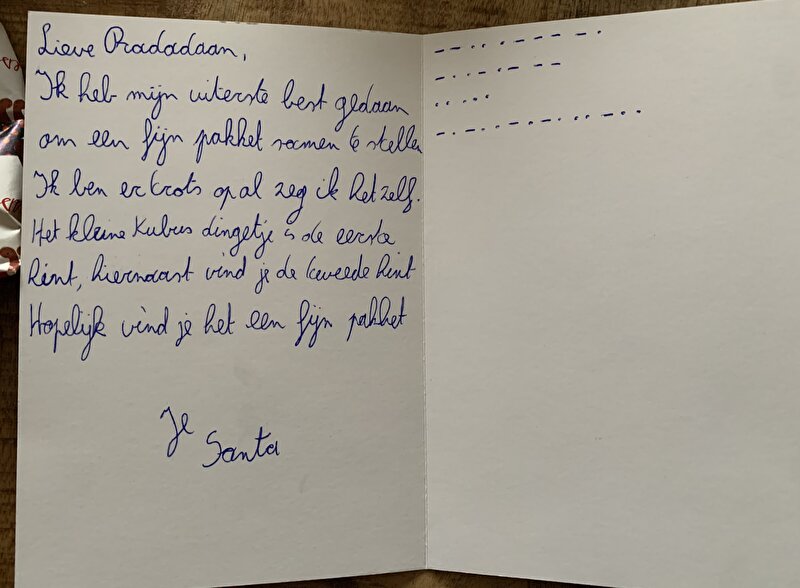 Lieve Pradadaan,
Ik heb mijn uiterste best gedaan
om een fijn pakket samen te stellen
Ik ben er trots op al zeg ik het zelf.
Het kleine Kubus dingetje is de eerste
hint, hiernaast vind je de tweede hint
Hopelijk vind je het een fijn pakket
Je
Santa
— — . . . — — — .
— . . — . — —
. . . .
— . — . . . — . . — . .. — .